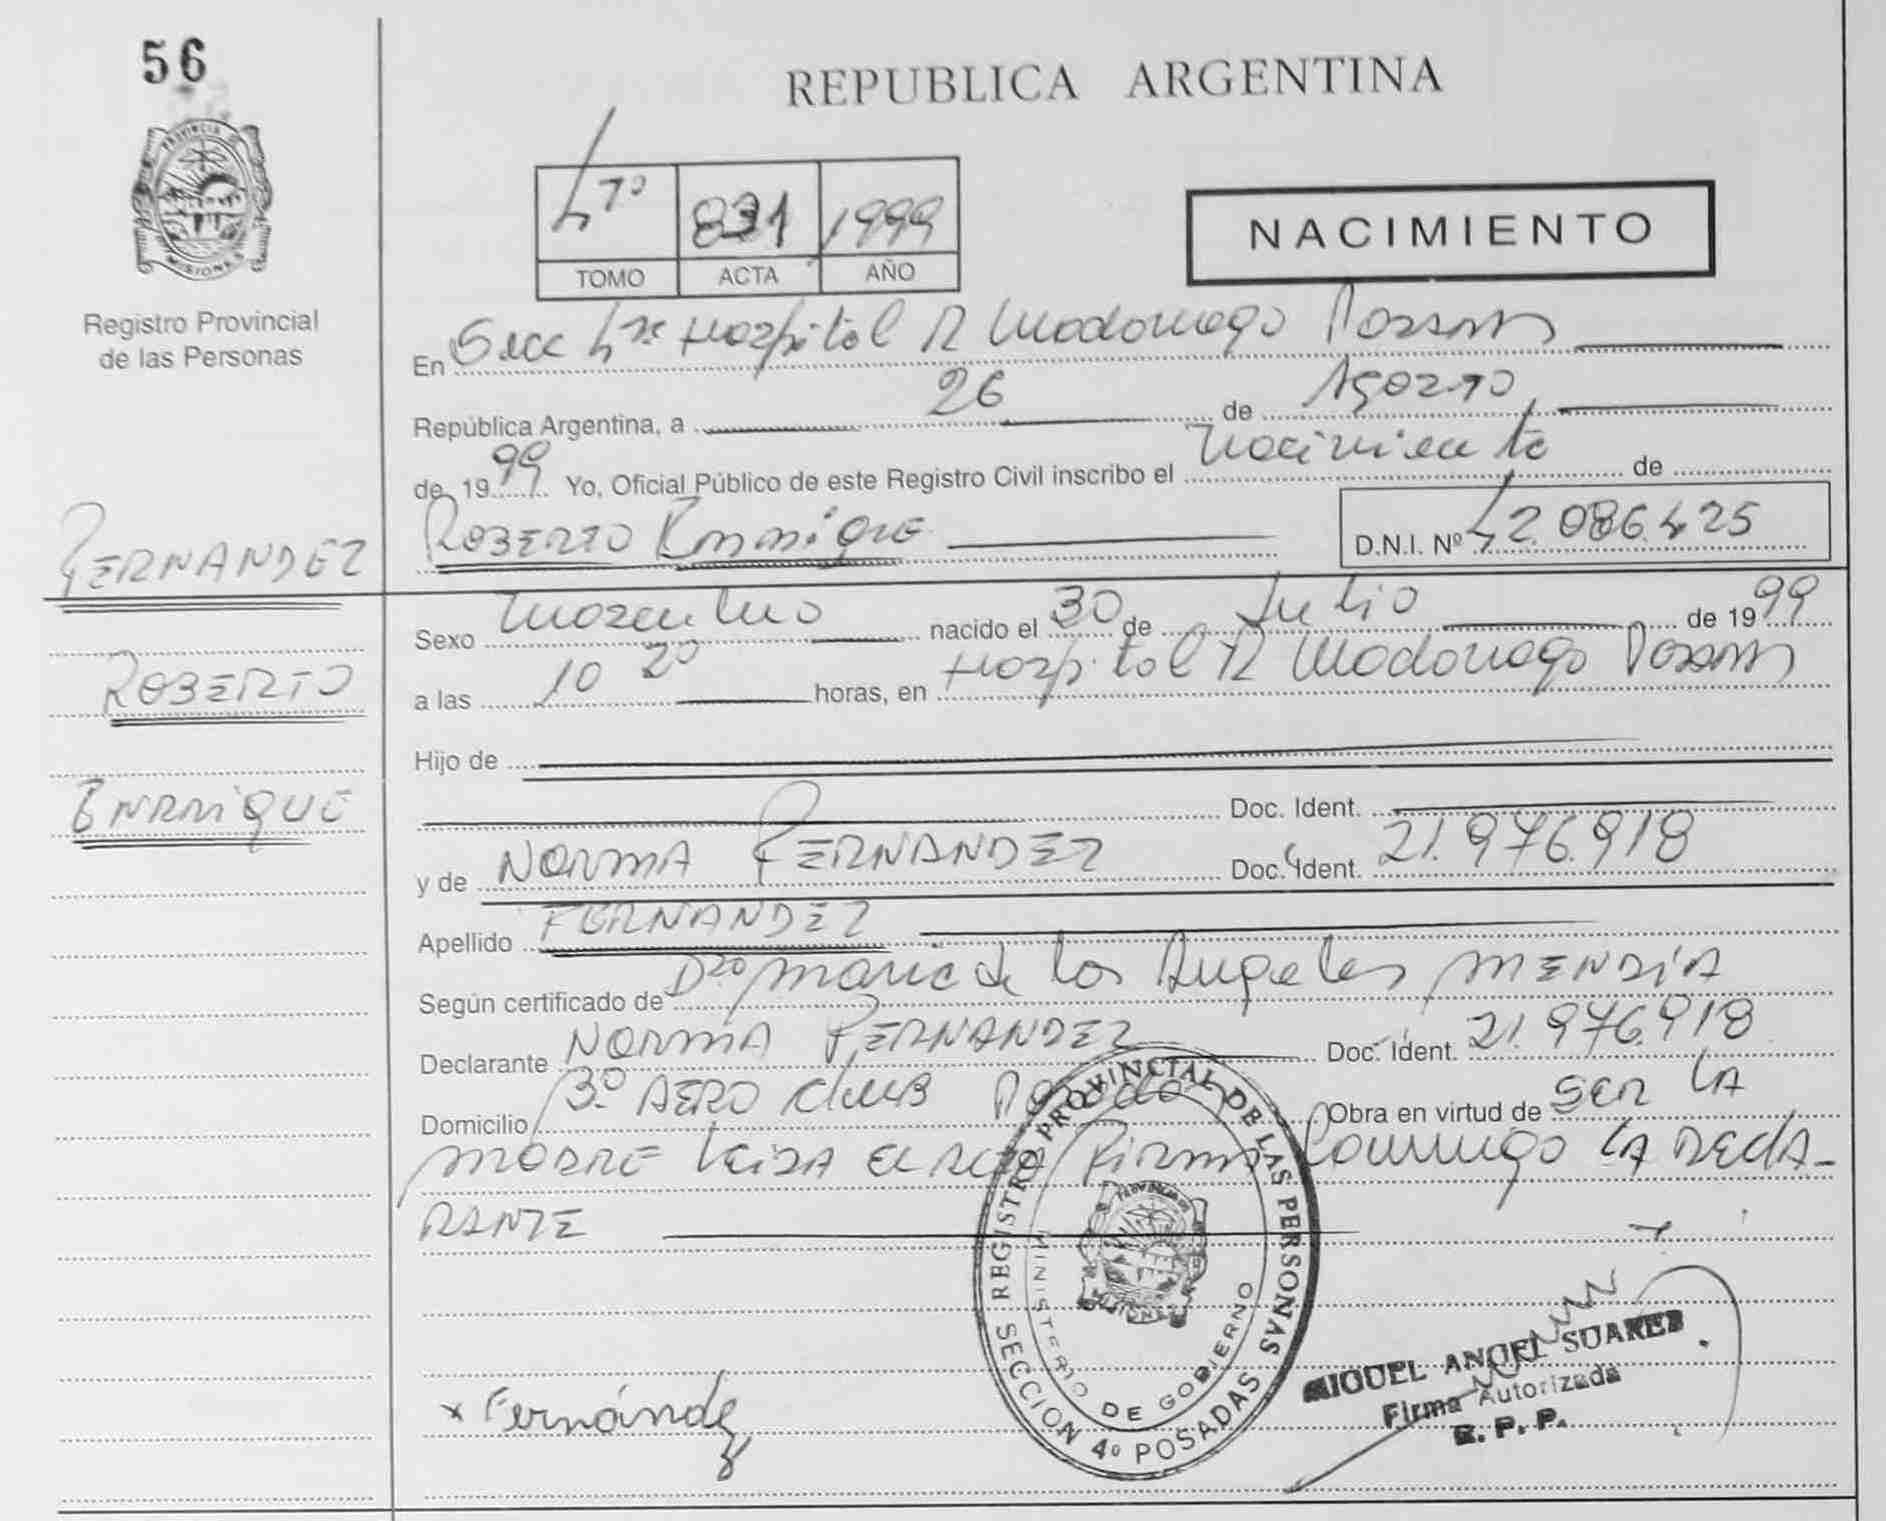 56
REPUBLICA ARGENTINA
PROVINCIA DE MISIONES
Registro Provincial
de las Personas
4 7º 831 1999
TOMO ACTA AÑO
NACIMIENTO
En Secc 4ta Hospital R Madariaga Posadas
República Argentina, a 26 de Agosto
de 1999 Yo, Oficial Público de este Registro Civil inscribo el Nacimiento de
FERNANDEZ
ROBERTO ENRRIQUE
D.N.I. Nº 42.086.425
Sexo Masculino nacido el 30 de Julio de 1999
ROBERTO
a las 10 20 horas, en Hospital R Madariaga Posadas
Hijo de
ENRRIQUE
Doc. Ident.
y de NORMA FERNANDEZ Doc. Ident. 21.976.918
Apellido FERNANDEZ
Según certificado de Dra Maria de los Angeles MENDIA
Declarante NORMA FERNANDEZ Doc. Ident. 21.976.918
Domicilio Bº AERO CLUB Posadas Obra en virtud de SER LA
MADRE Leida EL ACTA Firma Conmigo LA DECLA-
RANTE
REGISTRO PROVINCIAL DE LAS PERSONAS
MINISTERIO DE GOBIERNO
SECCION 4º POSADAS
x Fernández
MIGUEL ANGEL SUAREZ
Firma Autorizada
R. P. P.